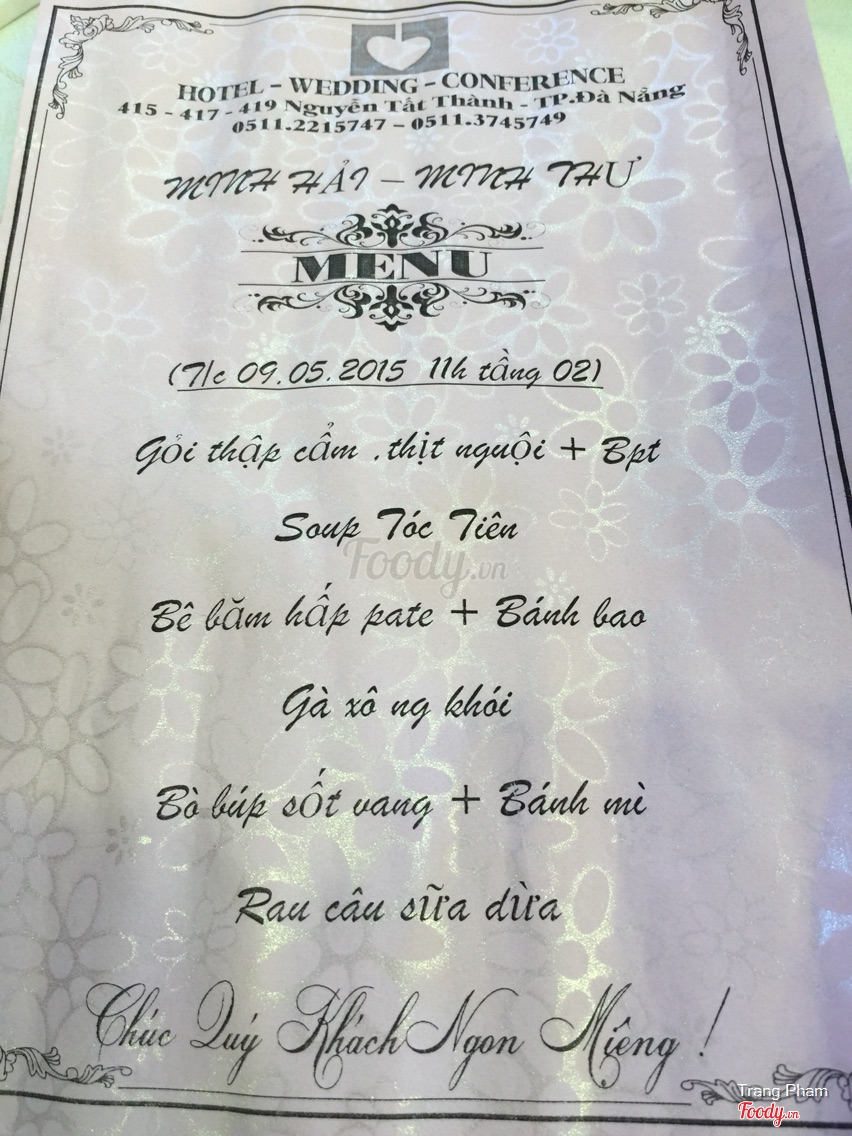 HOTEL - WEDDING - CONFERENCE
415 - 417 - 419 Nguyễn Tất Thành - TP.Đà Nẵng
0511.2215747 - 0511.3745749
MINH HẢI - MINH THƯ
MENU
(T/c 09.05.2015 11h tầng 02)
Gỏi thập cẩm , thịt nguội + Bpt
Soup Tóc Tiên
Foody.vn
Bê băm hấp pate + Bánh bao
Gà xô ng khói
Bò búp sốt vang + Bánh mì
Rau câu sữa dừa
Chúc Quý Khách Ngon Miệng !
Trang Pham
Foody.vn